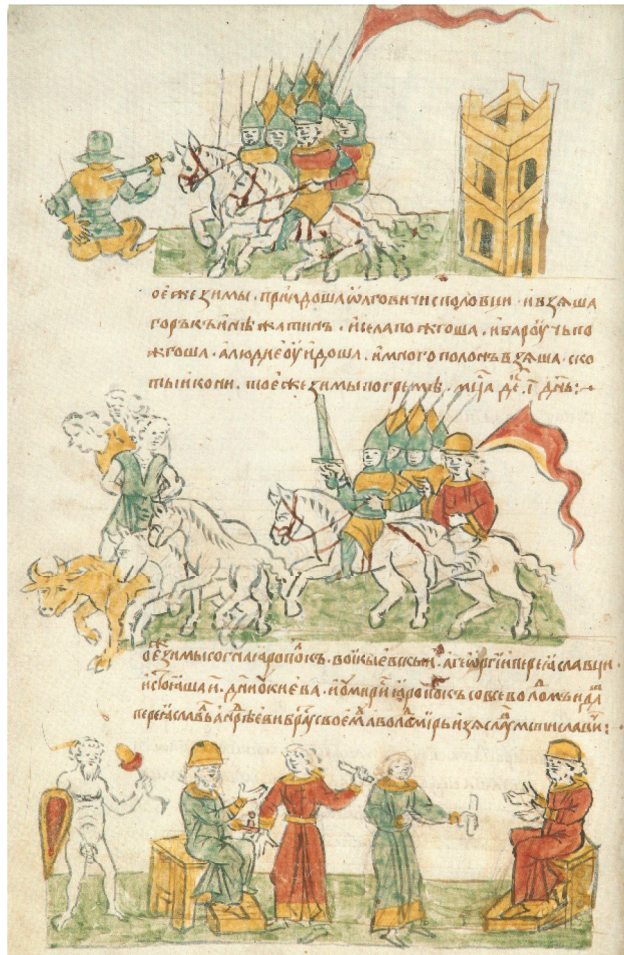 ое же зимы · прїидоша ѡлговичи с половци · и взѧша
горѡкъ и нѣжатинъ · и села пожгоша · и бароучь по
жгоша · а людие оуидоша · и много полонъ взѧша · ско
ты и кони · тое же зимы погремѣ · мц҃а дек · днь :·
ое же зимы согна ꙗрополкъ · вои кыевьскыи · а георгїи переꙗславци ·
и стоꙗша дни оу киева · и ꙗрополкъ со всеволодомъ и да
переꙗславль андрѣеви брату своемꙋ а володимирь изѧславꙋ мстиславичю :·